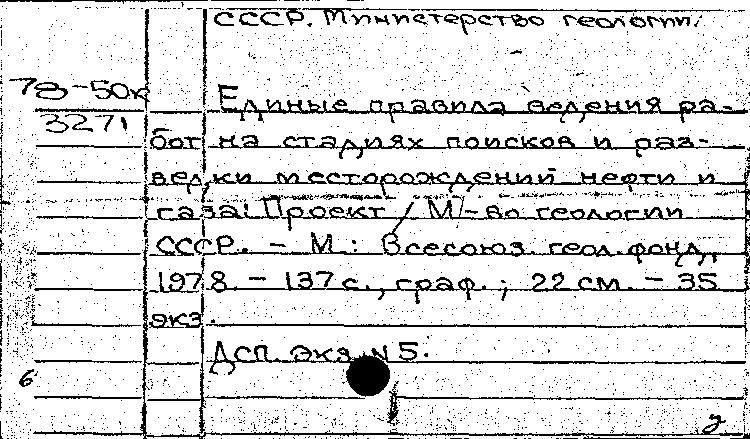 СССР. Министерство геологии.
78-50к
3271
Единые правила ведения ра-
бот на стадиях поисков и раз-
ведки месторождений нефти и
газа: Проект / М-во геологии
СССР. - М.: Всесоюз. геол. фонд,
1978. - 137 с., граф.; 22 см. - 35
экз.
Дсп. Экз. N 5.
6
у